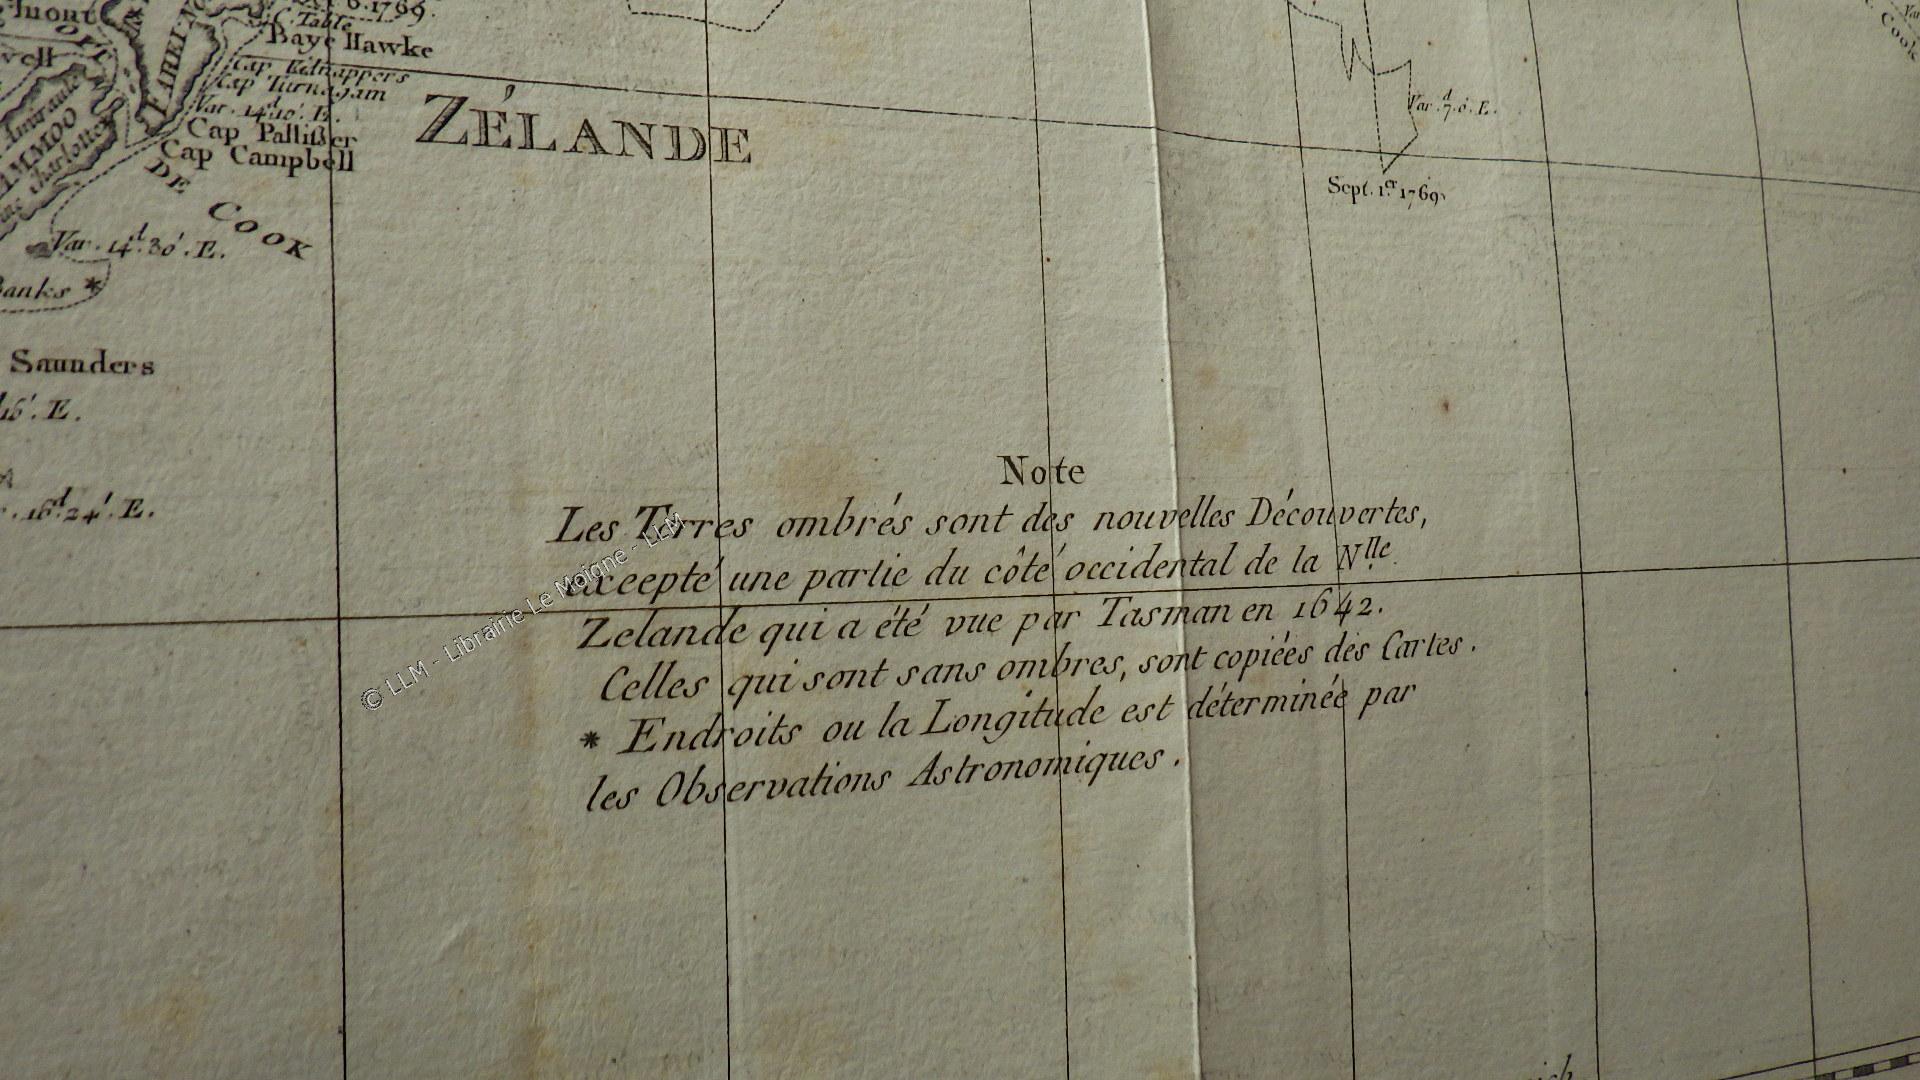 C. Table
Baye Hawke
Cap Kidnappers
Cap Turnagain
Var. 14d.10'. E.
Cap Palliſser
Cap Campbell
DE COOK
ZÉLANDE
Var. 7d.0'. E.
Sept. 1er. 1769.
Cook
Var. 14d.30'. E.
Banks *
Saunders
16'. E.
. 16d.24'. E.
Note
Les Terres ombrés sont des nouvelles Découvertes,
excepté une partie du côté occidental de la Nlle.
Zelande qui a été vue par Tasman en 1642.
Celles qui sont sans ombres, sont copiées des Cartes.
* Endroits ou la Longitude est déterminée par
les Observations Astronomiques.
© LLM - Librairie Le Moigne - LLM